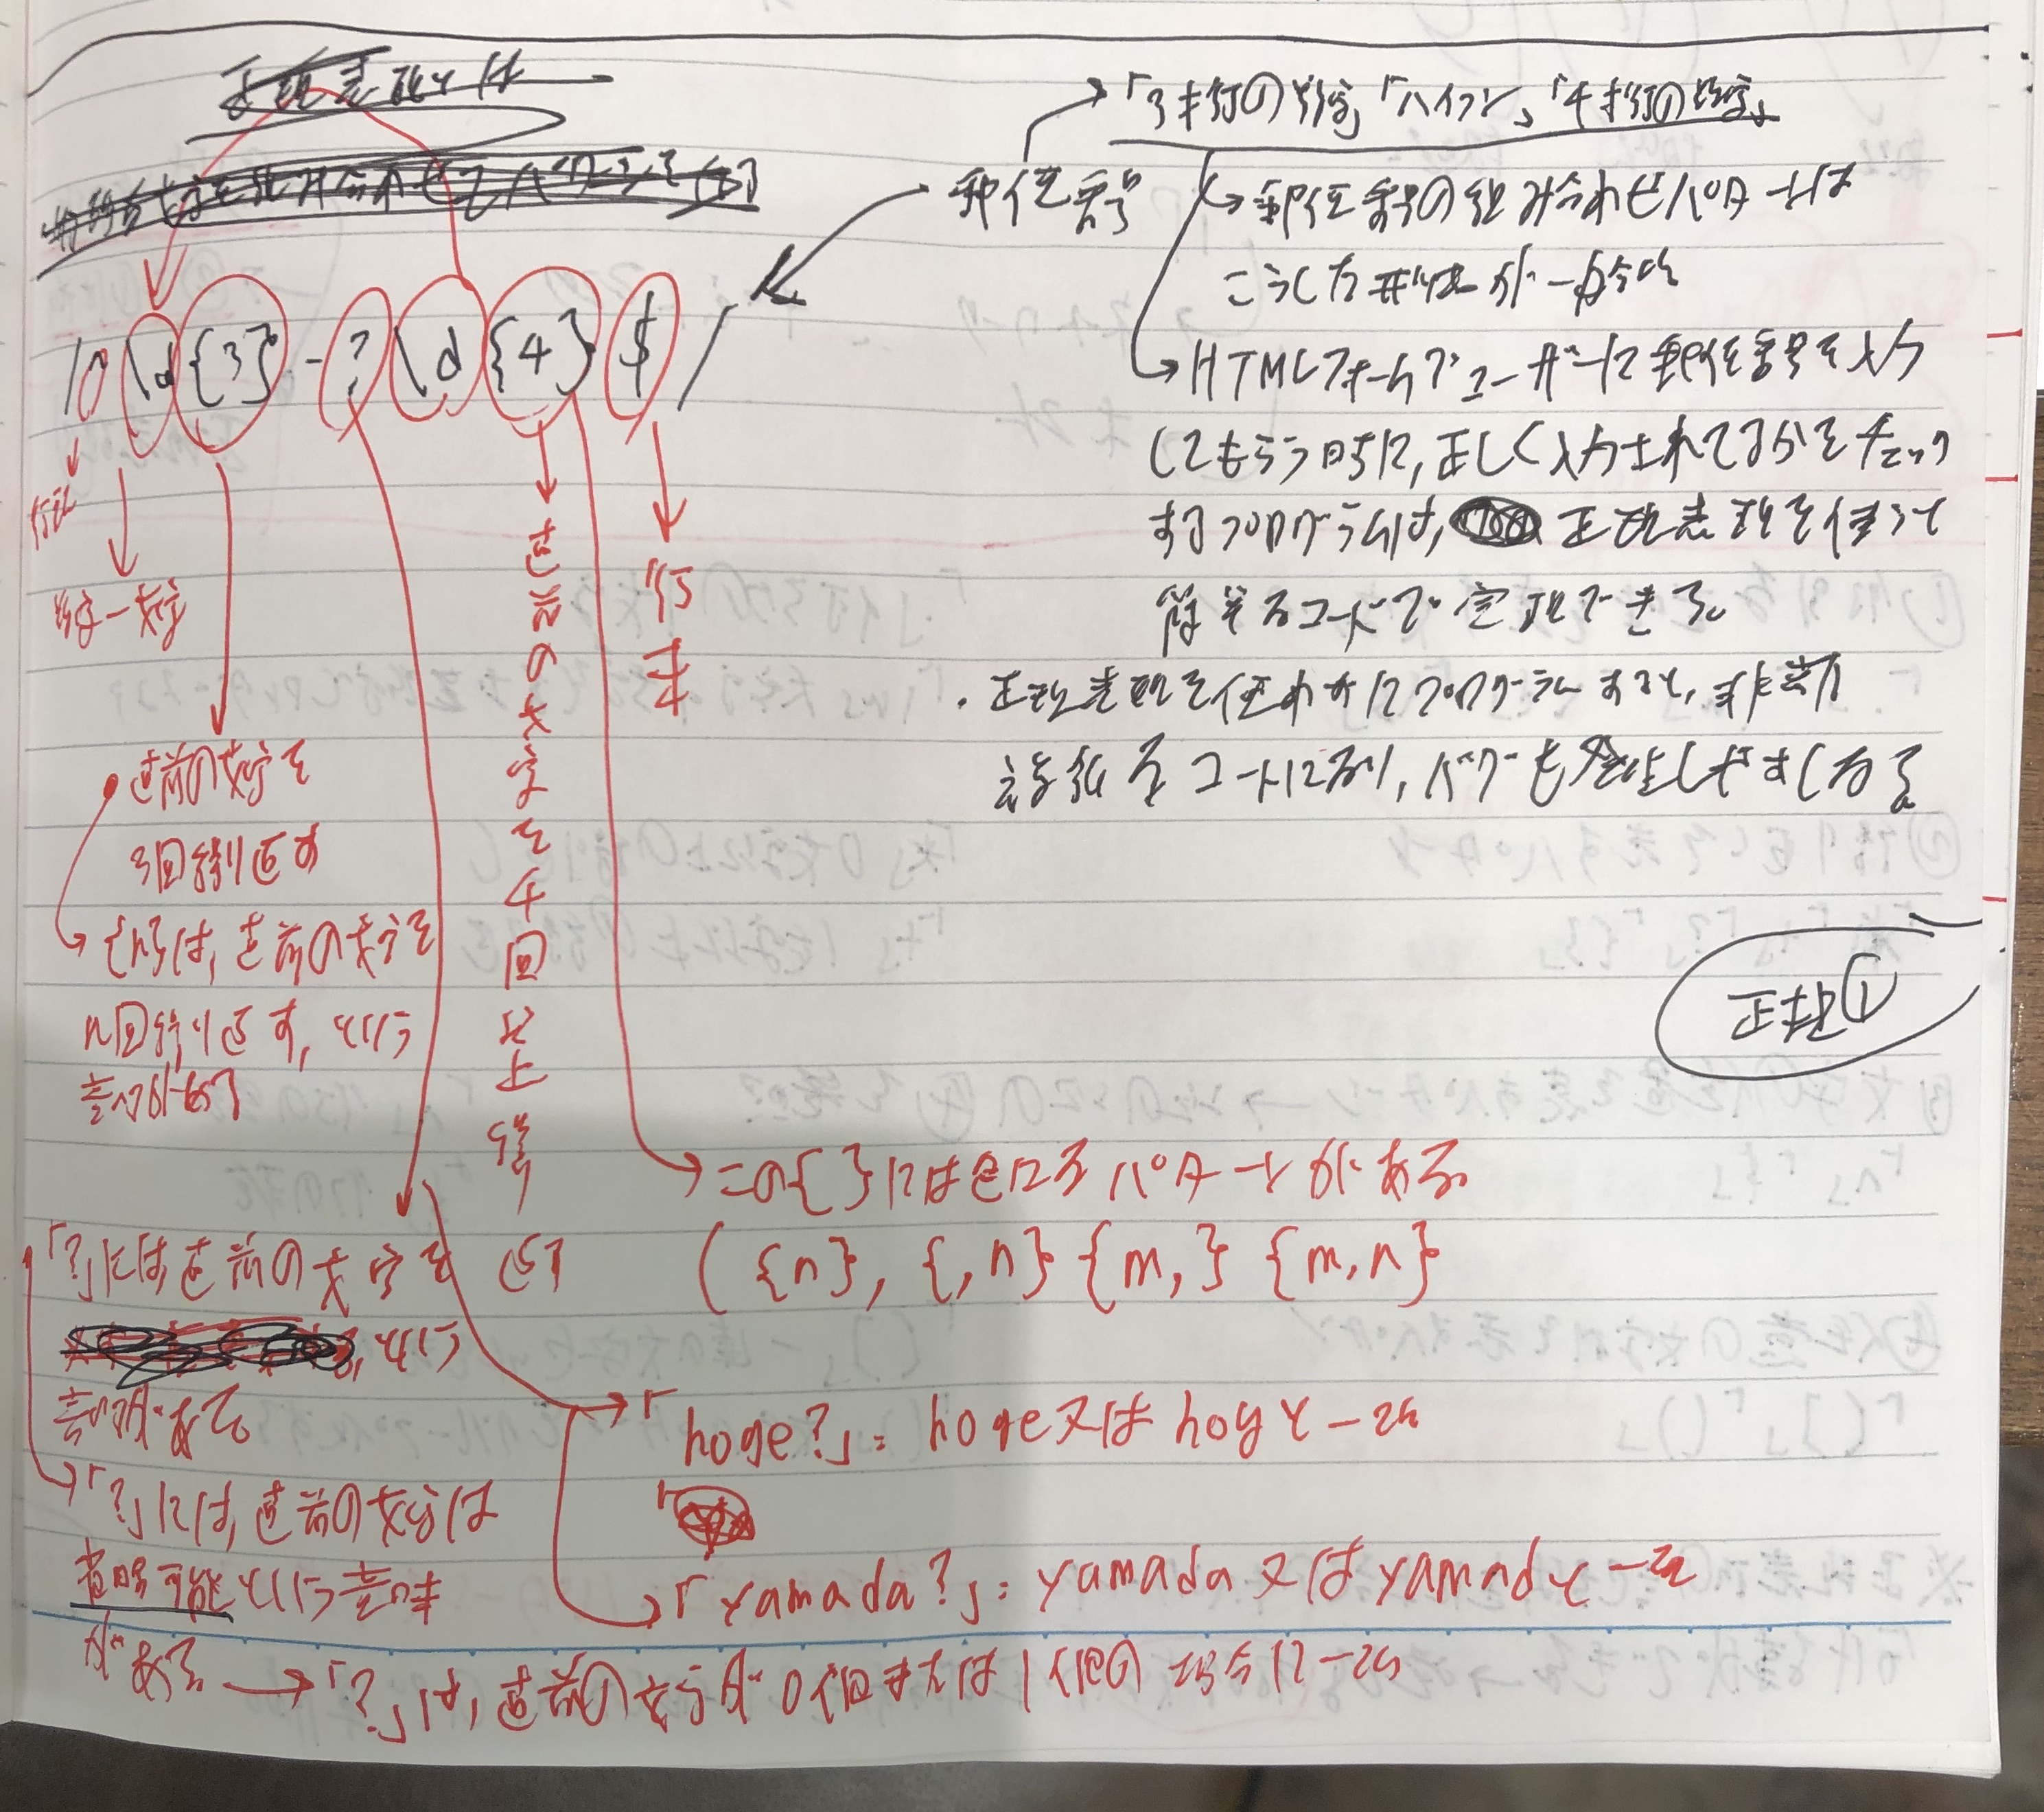 正規表現とは
「3ケタの数字」「ハイフン」「4ケタの数字」
郵便番号
郵便番号の組み合わせパターンは
こうした形状が一般的
HTMLフォームでユーザーに郵便番号を入力
してもらう時に,正しく入力されてるかをチェック
するプログラムは, 正規表現を使って
簡単なコードで実現できる。
・正規表現を使わずにプログラムすると,非常に
複雑なコードになり,バグも発生しやすくなる
/^\d{3}-?\d{4}$/
行頭
数字一文字
直前の文字を
3回繰り返す
{n}は,直前の文字を
n回繰り返す,という
意味がある
直前の文字を4回以上繰り返す
行末
この{}には色んなパターンがある
({n}, {,n} {m,} {m,n}
「?」には,直前の文字を
,という
意味がある
「?」には,直前の文字は
省略可能という意味
がある→「?」は,直前の文字が0個または1個の場合に一致
「hoge?」: hoge又はhogと一致
「yamada?」: yamada又はyamadと一致
正規①